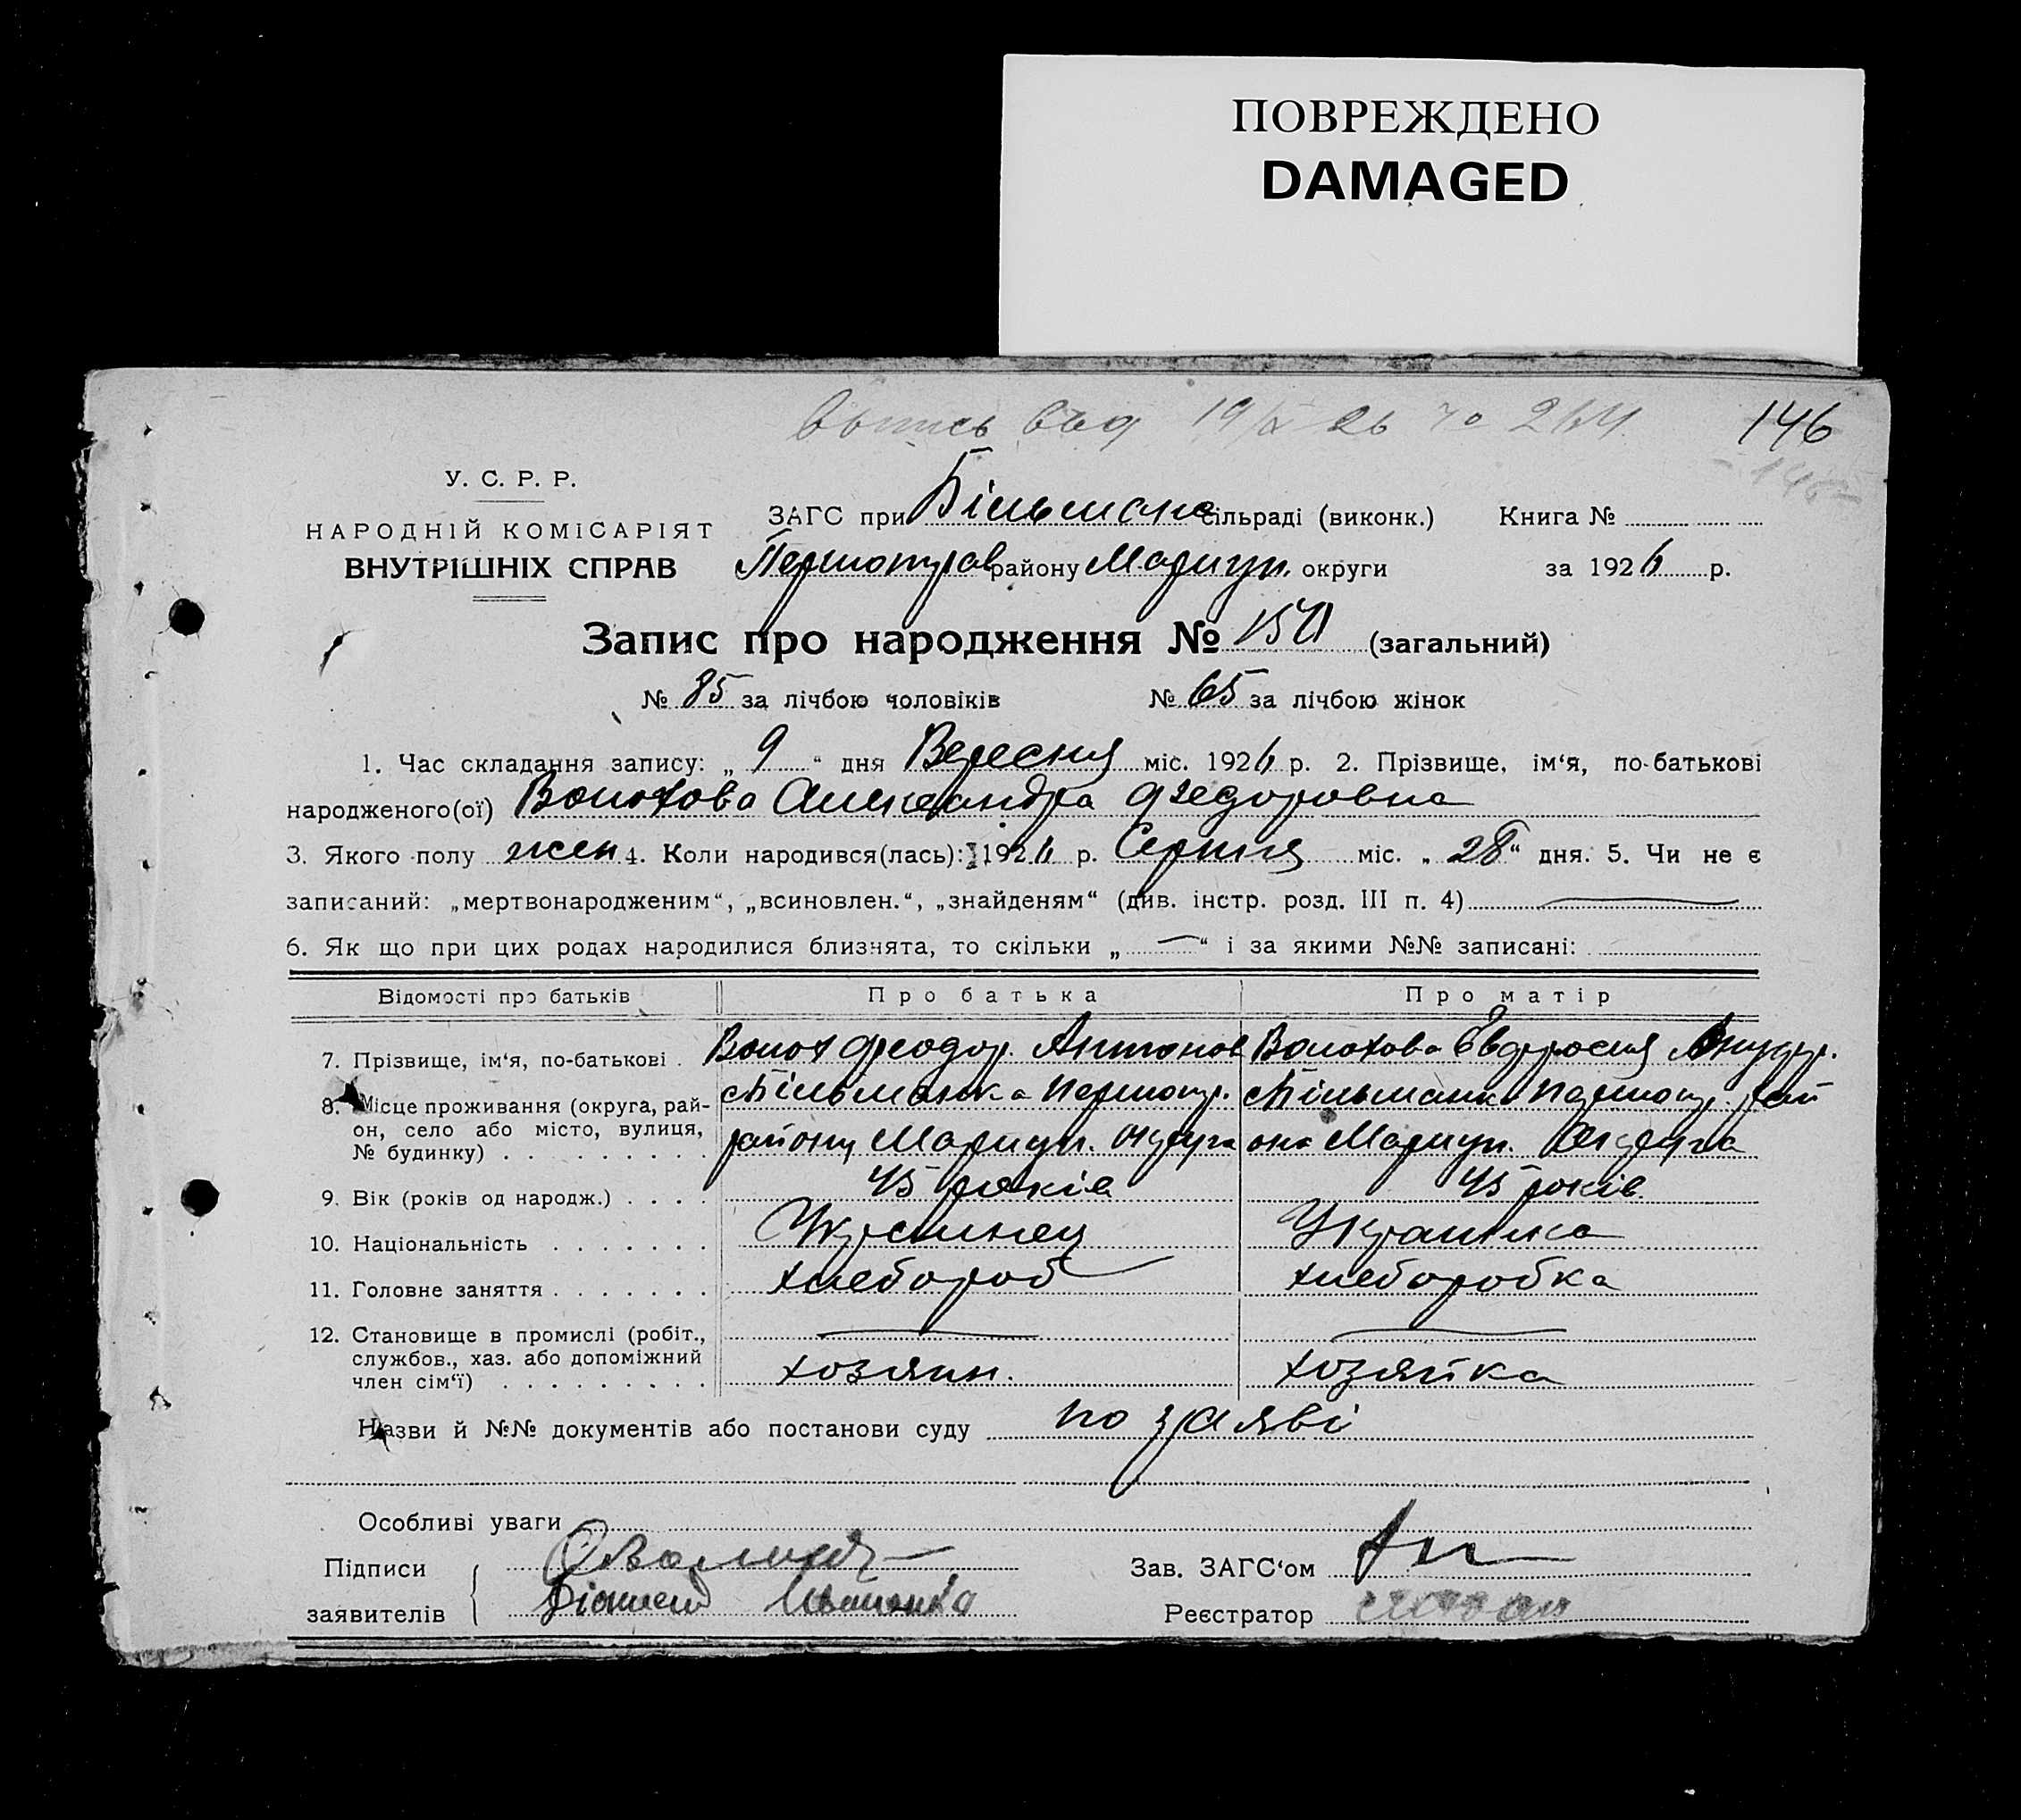 ПОВРЕЖДЕНО
DAMAGED
146
У. С. Р. Р.
НАРОДНІЙ КОМІСАРІЯТ
ВНУТРІШНІХ СПРАВ
ЗАГС при Більманс сільраді (виконк.) Книга №
Першотрав району Маріуп. округи за 1926 р.
Запис про народження № 150 (загальний)
№ 85 за лічбою чоловіків № 65 за лічбою жінок
1. Час складання запису: „ 9 “ дня Вересня міс. 1926 р. 2. Прізвище, ім‘я, по-батькові
народженого(ої) Волохова Александра Федоровна
3. Якого полу жен 4. Коли народився(лась): 1926 р. Серпня міс. „ 28 “ дня. 5. Чи не є
записаний: „мертвонародженим“, „всиновлен.“, „знайденям“ (див. інстр. розд. III п. 4)
6. Як що при цих родах народилися близнята, то скільки „ — “ і за якими №№ записані:
Відомості про батьків Про батька Про матір
7. Прізвище, ім‘я, по-батькові . Волох Феодор. Антонов Волохова Евдросия
8. Місце проживання (округа, рай- Більманка Першотр. Більманка Першотр. рай
он, село або місто, вулиця, району Маріуп. округа она Маріуп. Округа
№ будинку) . . . . . . . . .
9. Вік (років од народж.) . . . . 45 років 45 років
10. Національність . . . . . . . Украинец Украинка
11. Головне заняття . . . . . . . хлебороб хлеборобка
12. Становище в промислі (робіт.,
службов., хаз. або допоміжний
член сім‘ї) . . . . . . . . . хозяин. хозяйка
Назви й №№ документів або постанови суду по заяві
Особливі уваги
Підписи Зав. ЗАГС‘ом
заявителів Реєстратор